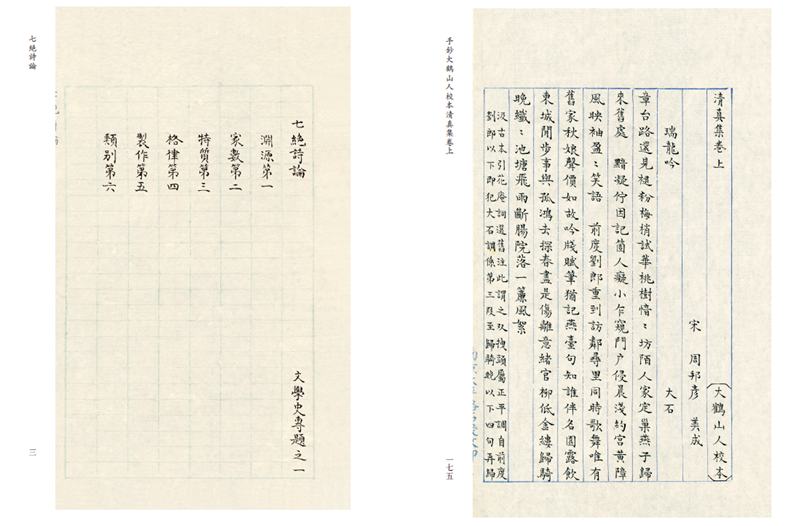 七絕詩論
文學史專題之一
淵源第一
家數第二
特質第三
格律第四
製作第五
類別第六
七絕詩論
三
清真集卷上
大鶴山人校本
宋 周邦彥 美成
瑞龍吟 大石
章台路還見褪粉梅梢試華桃樹愔〻坊陌人家定巢燕子歸
來舊處 黯凝佇因記箇人癡小乍窺門戶侵晨淺約宮黃障
風映袖盈〻笑語 前度劉郎重到訪鄰尋里同時歌舞唯有
舊家秋娘聲價如故吟牋賦筆猶記燕臺句知誰伴名園露飲
東城閒步事與孤鴻去探春盡是傷離意緒官柳低金縷歸騎
晚纖〻池塘飛雨斷腸院落一簾風絮
汲古本引花庵詞選舊注此謂之双拽頭屬正平調自前度
劉郎以下即犯大石調係第三段至歸騎晚以下四句再歸
手鈔大鶴山人校本清真集卷上
一七五